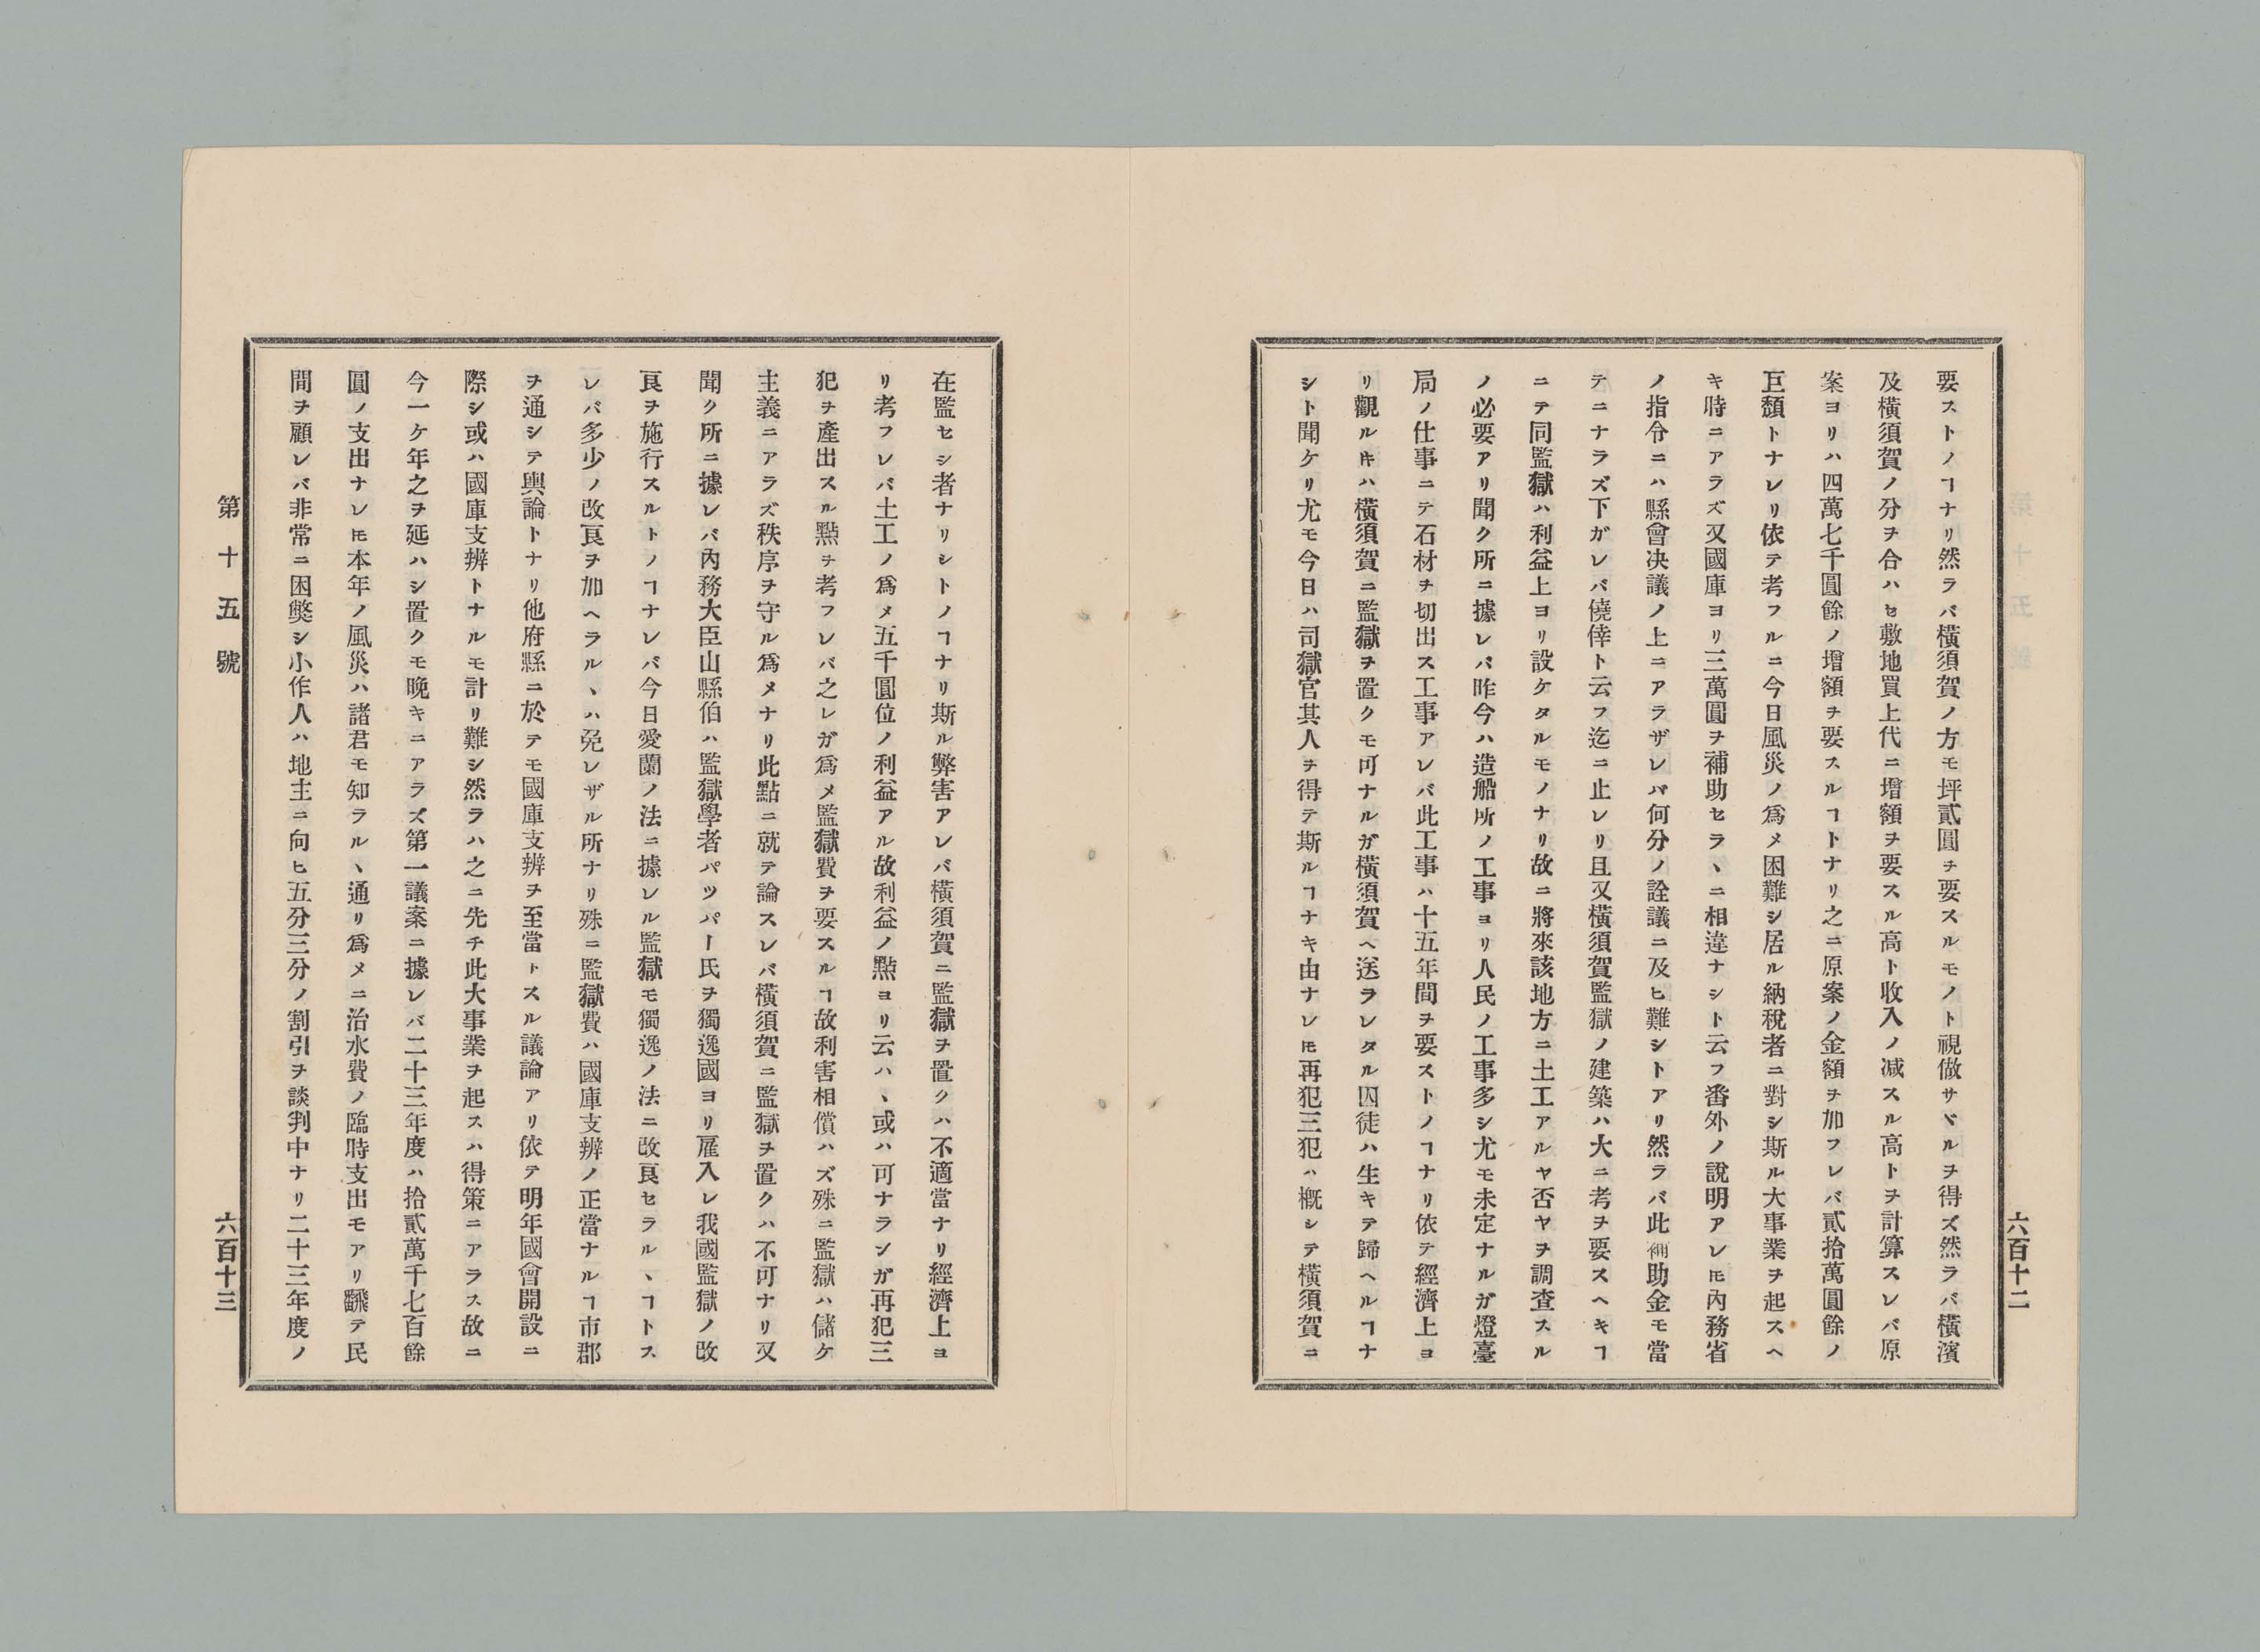 六百十二
要ストノヿナリ然ラバ橫須賀ノ方モ坪貳圓ヲ要スルモノト視做サヾルヲ得ズ然ラバ橫濱
及橫須賀ノ分ヲ合ハセ敷地買上代ニ增額ヲ要スル高ト收入ノ减スル高トヲ計算スレバ原
案ヨリハ四萬七千圓餘ノ增額ヲ要スルヿトナリ之ニ原案ノ金額ヲ加フレバ貳拾萬圓餘ノ
巨額トナレリ依テ考フルニ今日風災ノ爲メ困難シ居ル納稅者ニ對シ斯ル大事業ヲ起スヘ
キ時ニアラズ又國庫ヨリ三萬圓ヲ補助セラヽニ相違ナシト云フ番外ノ說明アレ𪜈內務省
ノ指令ニハ縣會决議ノ上ニアラザレバ何分ノ詮議ニ及ヒ難シトアリ然ラバ此補助金モ當
テニナラズ下ガレバ僥倖ト云フ迄ニ止レリ且又橫須賀監獄ノ建築ハ大ニ考ヲ要スヘキヿ
ニテ同監獄ハ利益上ヨリ設ケタルモノナリ故ニ將來該地方ニ土工アルヤ否ヤヲ調査スル
ノ必要アリ聞ク所ニ據レバ昨今ハ造船所ノ工事ヨリ人民ノ工事多シ尤モ未定ナルガ燈臺
局ノ仕事ニテ石材ヲ切出ス工事アレバ此工事ハ十五年間ヲ要ストノヿナリ依テ經濟上ヨ
リ觀ルキハ橫須賀ニ監獄ヲ置クモ可ナルガ橫須賀ヘ送ラレタル囚徒ハ生キテ歸ヘルヿナ
シト聞ケリ尤モ今日ハ司獄官其人ヲ得テ斯ルヿナキ由ナレ𪜈再犯三犯ハ概シテ橫須賀ニ
在監セシ者ナリシトノヿナリ斯ル弊害アレバ橫須賀ニ監獄ヲ置クハ不適當ナリ經濟上ヨ
リ考フレバ土工ノ爲メ五千圓位ノ利益アル故利益ノ點ヨリ云ハヽ或ハ可ナランガ再犯三
犯ヲ產出スル點ヲ考フレバ之レガ爲メ監獄費ヲ要スルヿ故利害相償ハズ殊ニ監獄ハ儲ケ
主義ニアラズ秩序ヲ守ル爲メナリ此點ニ就テ論スレバ橫須賀ニ監獄ヲ置クハ不可ナリ又
聞ク所ニ據レバ內務大臣山縣伯ハ監獄學者パツパー氏ヲ獨逸國ヨリ雇入レ我國監獄ノ改
良ヲ施行スルトノヿナレバ今日愛蘭ノ法ニ據レル監獄モ獨逸ノ法ニ改良セラルヽヿトス
レバ多少ノ改良ヲ加ヘラルヽハ免レザル所ナリ殊ニ監獄費ハ國庫支辨ノ正當ナルヿ市郡
ヲ通シテ輿論トナリ他府縣ニ於テモ國庫支辨ヲ至當トスル議論アリ依テ明年國會開設ニ
際シ或ハ國庫支辨トナルモ計リ難シ然ラハ之ニ先チ此大事業ヲ起スハ得策ニアラス故ニ
今一ケ年之ヲ延ハシ置クモ晚キニアラズ第一議案ニ據レバ二十三年度ハ拾貳萬千七百餘
圓ノ支出ナレ𪜈本年ノ風災ハ諸君モ知ラルヽ通リ爲メニ治水費ノ臨時支出モアリ飜テ民
間ヲ顧レバ非常ニ困弊シ小作人ハ地主ニ向ヒ五分三分ノ割引ヲ談判中ナリ二十三年度ノ
第十五號
六百十三